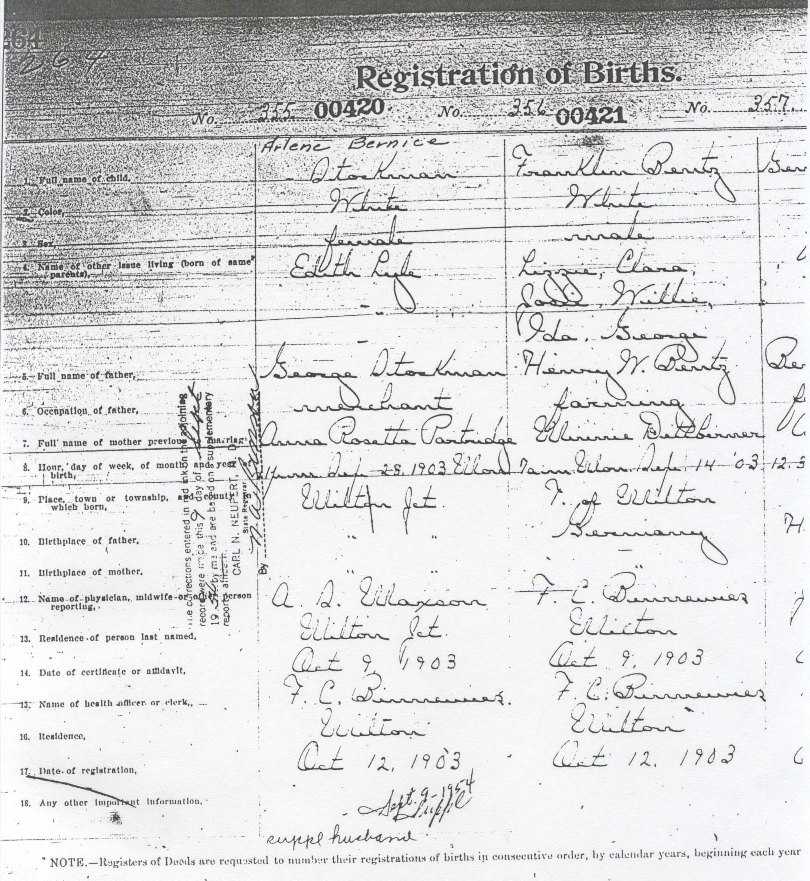 264
Registration of Births.
No. 355 00420. No. 356 00421 No. 357.
Arlene Bernice
1. Full name of child, Stockman Franklin Bentz
2. Color, White White
3. Sex, female male
4. Name of other issue living (born of same Edith Lyle Lizzie, Clara,
parents), Willie,
" Ida, George
5. Full name of father, George Stockman Henry W. Bentz
6. Occupation of father, merchant farming
7. Full name of mother previous marriage Anna Rosetta Partridge Minnie
8. Hour, day of week, of month and year of Sep 28, 1903 Mon 7am Mon. Sep 14 '03
birth,
9. Place, town or township, and county in Wilton Jct. T. of Wilton
which born,
10. Birthplace of father, " " Germany
11. Birthplace of mother, " " " "
12. Name of physician, midwife or other person A. S. Maxson F. C. Binnewies
reporting,
13. Residence of person last named, Wilton Jct. Wilton
14. Date of certificate or affidavit, Oct 9, 1903 Oct 9, 1903
15. Name of health officer or clerk, F. C. Binnewies. F. C. Binnewies
16. Residence, Wilton Wilton
17. Date of registration, Oct 12, 1903 Oct 12, 1903
18. Any other important information. Sept. 9-1954
Suppl
suppl husband
corrections entered in red ink on the adjoining
record were made this 9 day of Sept
1954 by me and are based on a supplementary
report
CARL N. NEUPERT, M. D.
State Registrar
By
* NOTE.—Registers of Deeds are requested to number their registrations of births in consecutive order, by calendar years, beginning each year